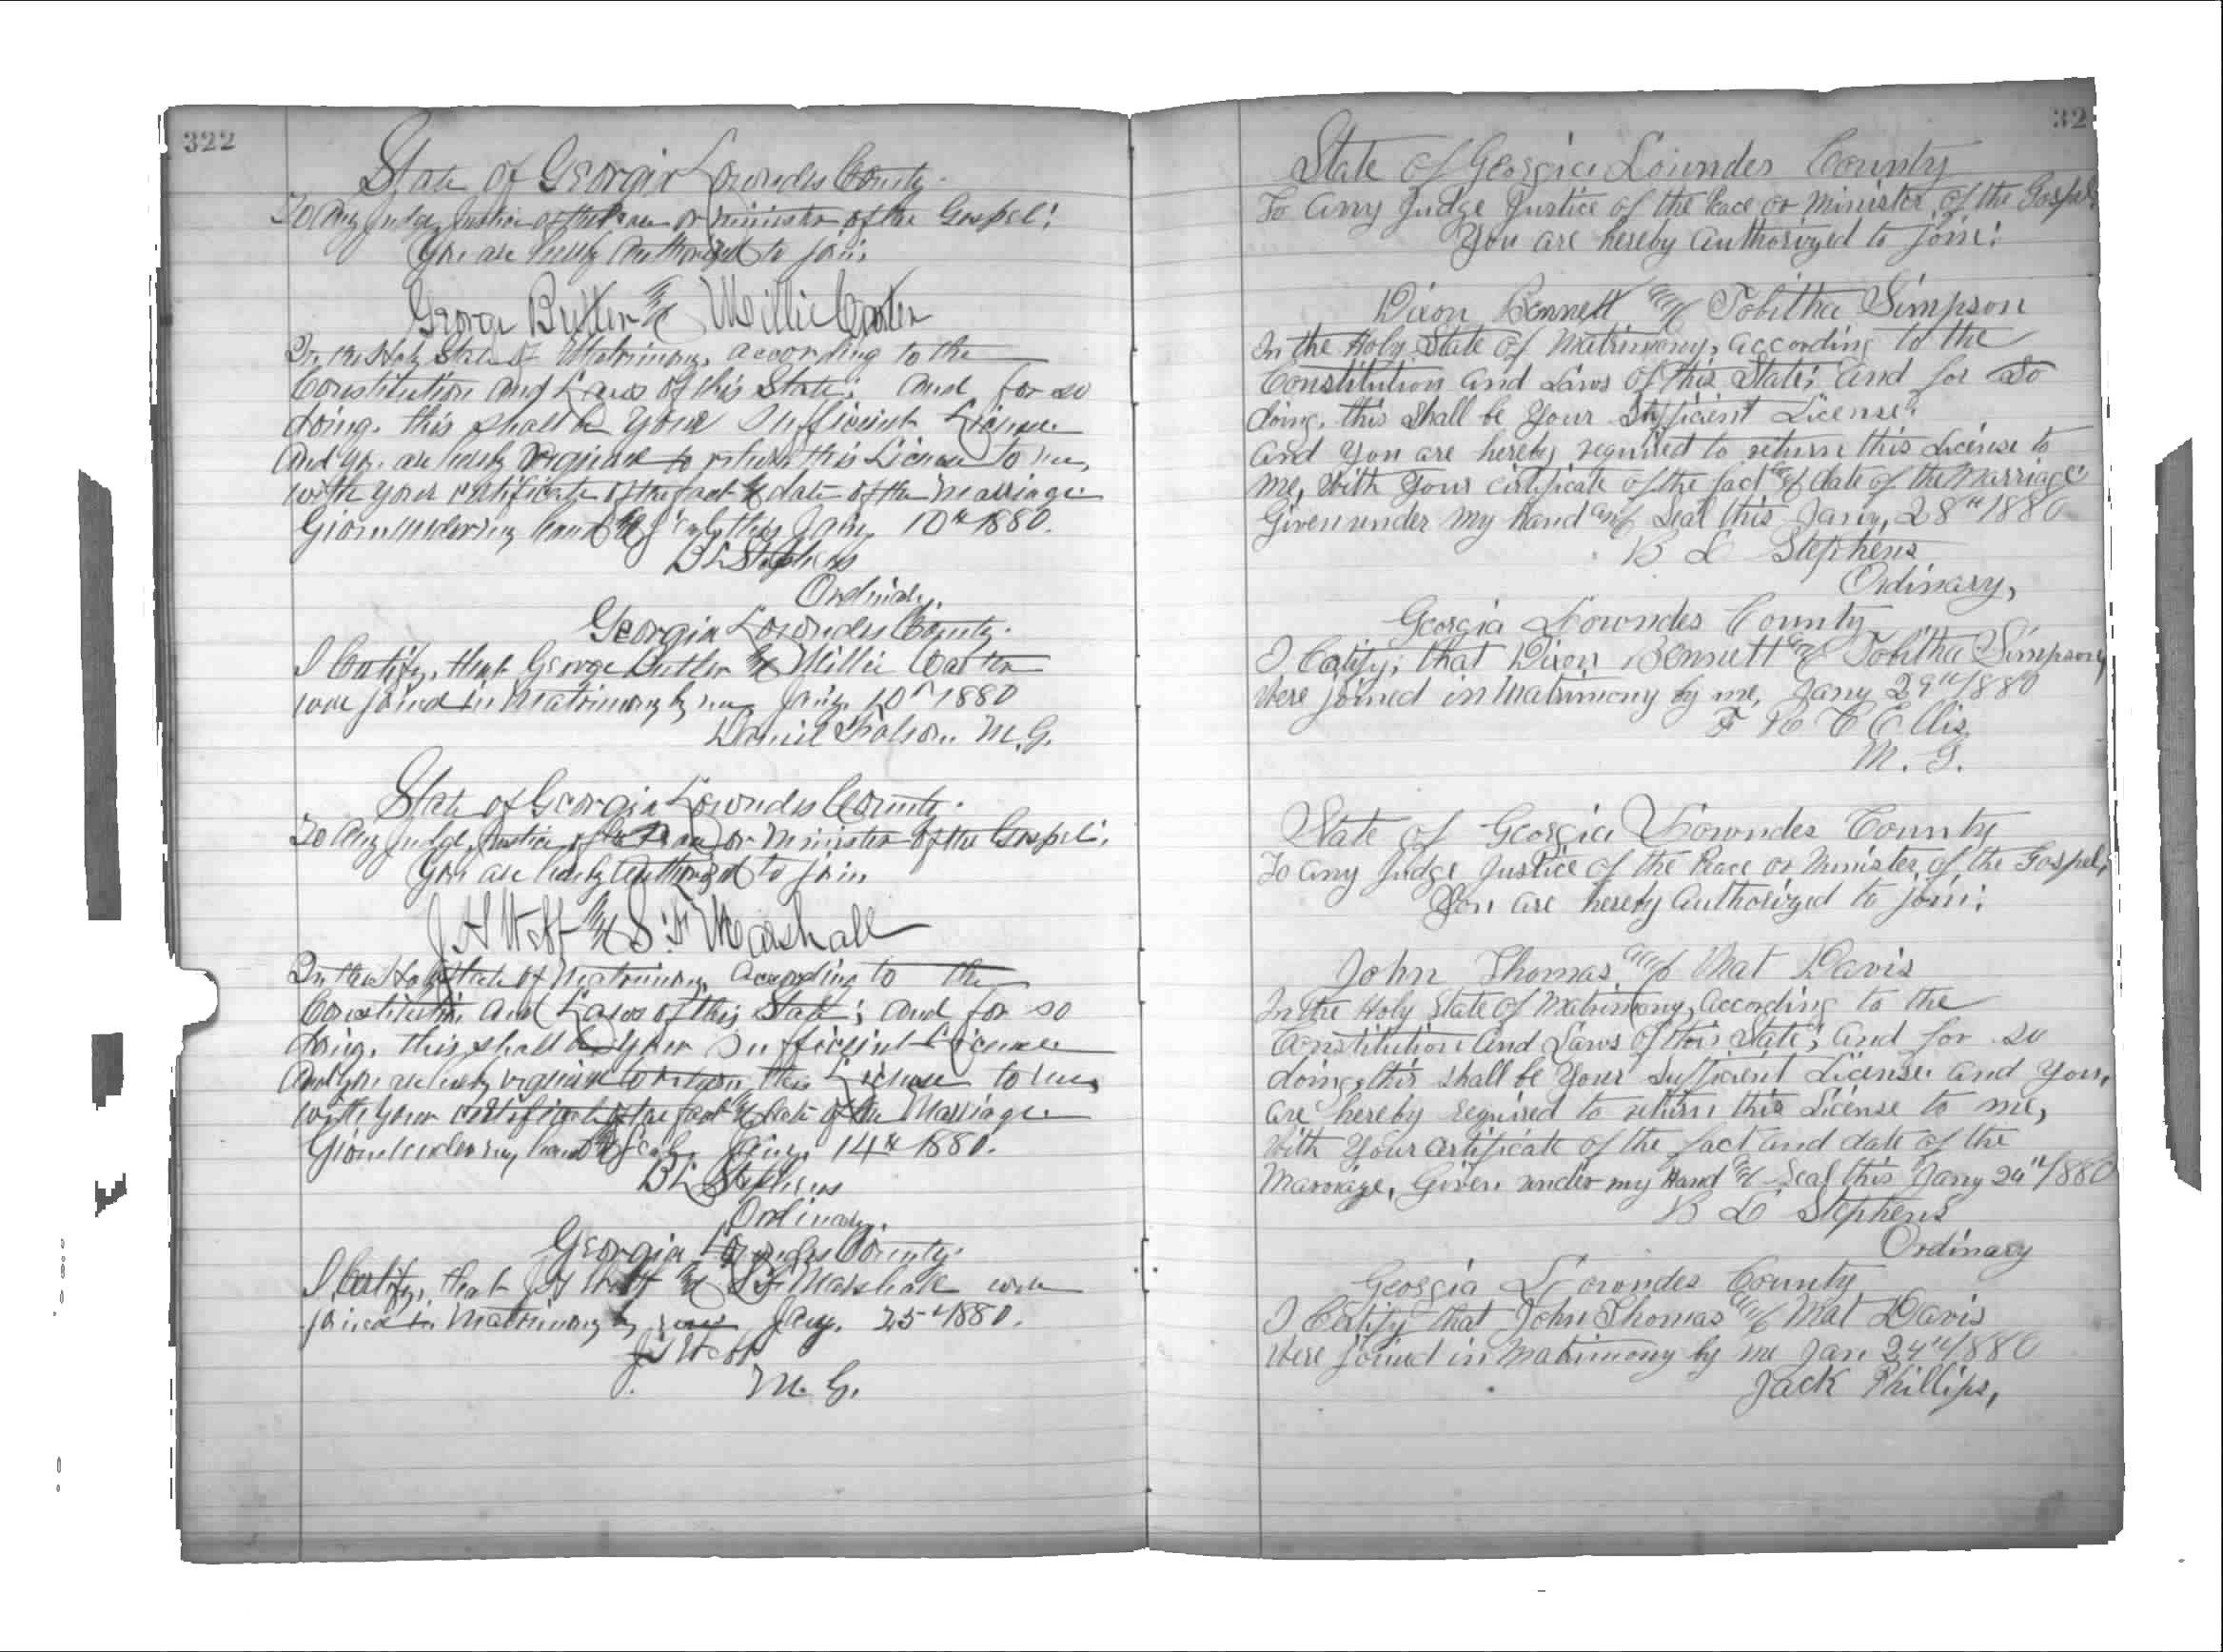 322
State of Georgia Lowndes County.
To Any Judge, Justice of the Peace or Minister of the Gospel:
You are hereby Authorized to join:
George Butler and Millie Carter
In the Holy State of Matrimony, according to the
Constitution and Laws of this State; and for so
doing, this shall be your Sufficient License
And you are hereby required to return this License to me,
with your certificate of the fact and date of the marriage.
Given under my hand and Seal, this Jany. 10th 1880.
B L Stephens
Ordinary.
Georgia Lowndes County.
I Certify, that George Butler and Millie Carter
were joined in Matrimony by me Jany. 10th 1880
Daniel M. G.
State of Georgia Lowndes County.
To Any Judge, Justice of the Peace or Minister of the Gospel:
You are hereby Authorized to join
J A Webb and S. F Marshall
In the Holy State of Matrimony, according to the
Constitution and Laws of this State; and for so
doing, this shall be your Sufficient License
And you are hereby required to return this License to me,
with your certificate of the fact and date of the Marriage.
Given under my hand and Seal, Jany. 14th 1880.
B L Stephens
Ordinary.
Georgia Lowndes County.
I Certify, that J A Webb and S F Marshall were
joined in Matrimony by me Jany. 25th 1880.
Webb
M. G.
32
State of Georgia Lowndes County
To Any Judge Justice of the Peace or Minister of the Gospel,
You are hereby Authorized to join:
Dixon Bennett and Tobitha Simpson
In the Holy State of Matrimony, according to the
Constitution and Laws of this State; and for so
doing, this shall be Your Sufficient License.
and You are hereby required to return this License to
me, With Your certificate of the fact and date of the Marriage
Given under my hand and Seal this Jany, 28th 1880
B L Stephens
Ordinary,
Georgia Lowndes County
I Certify, that Dixon Bennett and Tobitha Simpson,
Were joined in Matrimony by me, Jany 29th 1880
F R C Ellis
M. G.
State of Georgia Lowndes County
To any Judge Justice of the Peace or Minister of the Gospel,
You are hereby Authorized to join:
John Thomas and Mat Davis
In the Holy State of Matrimony, According to the
Constitution And Laws of this State; and for so
doing, this shall be Your Sufficient License and You,
are hereby required to return this License to me,
With Your Certificate of the fact and date of the
Marriage, Given under my Hand and Seal this Jany 24th 1880
B L Stephens
Ordinary
Georgia Lowndes County
I Certify that John Thomas and Mat Davis
Were joined in Matrimony by me Jan 24th 1880
Jack Phillips,